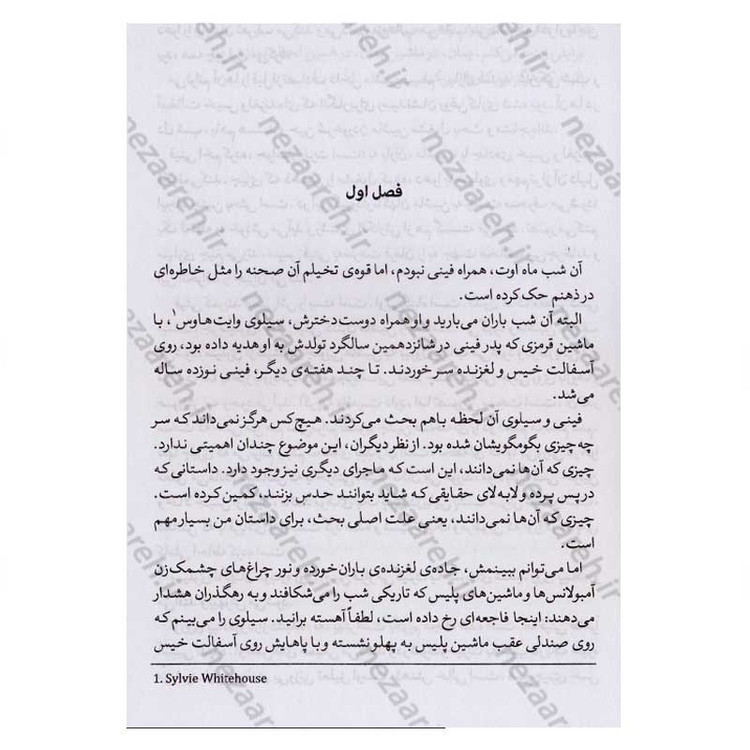 فصل اول
آن شب ماه اوت، همراه فینی نبودم، اما قوه‌ی تخیلم آن صحنه را مثل خاطره‌ای
در ذهنم حک کرده است.
البته آن شب باران می‌بارید و او همراه دوست‌دخترش، سیلوی وایت‌هاوس۱، با
ماشین قرمزی که پدر فینی در شانزدهمین سالگرد تولدش به او هدیه داده بود، روی
آسفالت خیس و لغزنده سر خوردند. تا چند هفته‌ی دیگر، فینی نوزده ساله
می‌شد.
فینی و سیلوی آن لحظه باهم بحث می‌کردند. هیچ‌کس هرگز نمی‌داند که سر
چه چیزی بگومگویشان شده بود. از نظر دیگران، این موضوع چندان اهمیتی ندارد.
چیزی که آن‌ها نمی‌دانند، این است که ماجرای دیگری نیز وجود دارد. داستانی که
در پس پرده و لابه‌لای حقایقی که شاید بتوانند حدس بزنند، کمین کرده است.
چیزی که آن‌ها نمی‌دانند، یعنی علت اصلی بحث، برای داستان من بسیار مهم
است.
اما می‌توانم ببینمش، جاده‌ی لغزنده‌ی باران‌خورده و نور چراغ‌های چشمک‌زن
آمبولانس‌ها و ماشین‌های پلیس که تاریکی شب را می‌شکافند و به رهگذران هشدار
می‌دهند: اینجا فاجعه‌ای رخ داده است، لطفاً آهسته برانید. سیلوی را می‌بینم که
روی صندلی عقب ماشین پلیس به پهلو نشسته و با پاهایش روی آسفالت خیس
1. Sylvie Whitehouse
nezaareh.ir